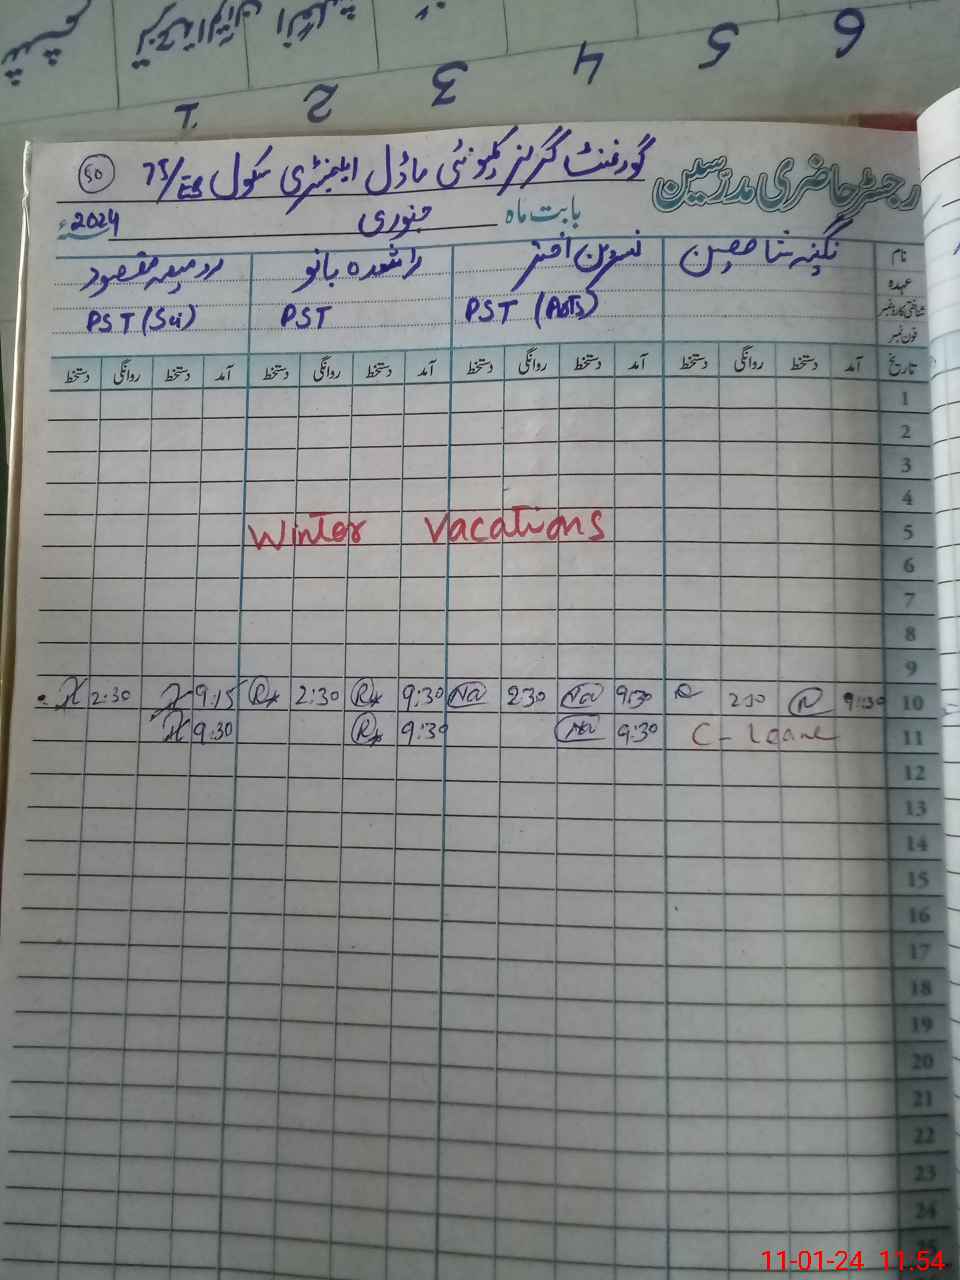 6 5 4 3 2 1
رجسٹر حاضری مدرسین
گورنمنٹ گرلز کمیونٹی ماڈل ایلیمنٹری سکول 75/EB
50
بابت ماہ جنوری 2024ء
نام نگینہ شاھین نسرین اختر راشدہ بانو رومیصہ مقصود
عہدہ
شناختی کارڈ نمبر PST (Arts) PST PST (Sci)
فون نمبر
تاریخ آمد دستخط روانگی دستخط آمد دستخط روانگی دستخط آمد دستخط روانگی دستخط آمد دستخط روانگی دستخط
1
2
3
4
5 Winter Vacations
6
7
8
9
10 9:30 2:30 9:30 2:30 9:30 2:30 9:15 2:30
11 C-Leave 9:30 9:30 9:30
12
13
14
15
16
17
18
19
20
21
22
23
24
25
11-01-24 11:54